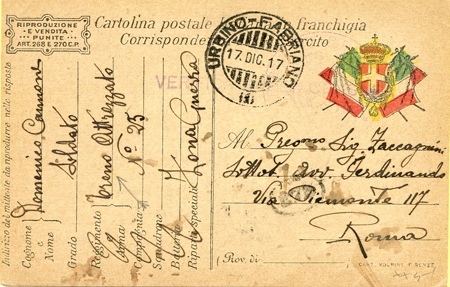 RIPRODUZIONE
E VENDITA
PUNITE
ART. 268 E 270 C.P.
Cartolina postale franchigia
Corrisponde rcito
URBINO-FABRIANO
17. DIC. 17
(1)
VER
Indirizzo del mittente da riprodurre nelle risposte
Cognome e Nome Domenico
Grado Soldato
Reggimento Treno Attrezzato
Arma
Compagnia N° 25
Squadrone
Batteria
Riparti speciali Zona Guerra
Al Sig. Zaccagnini
Sottot. Avv. Ferdinando
Via Piemonte 117
Roma
(Prov. di